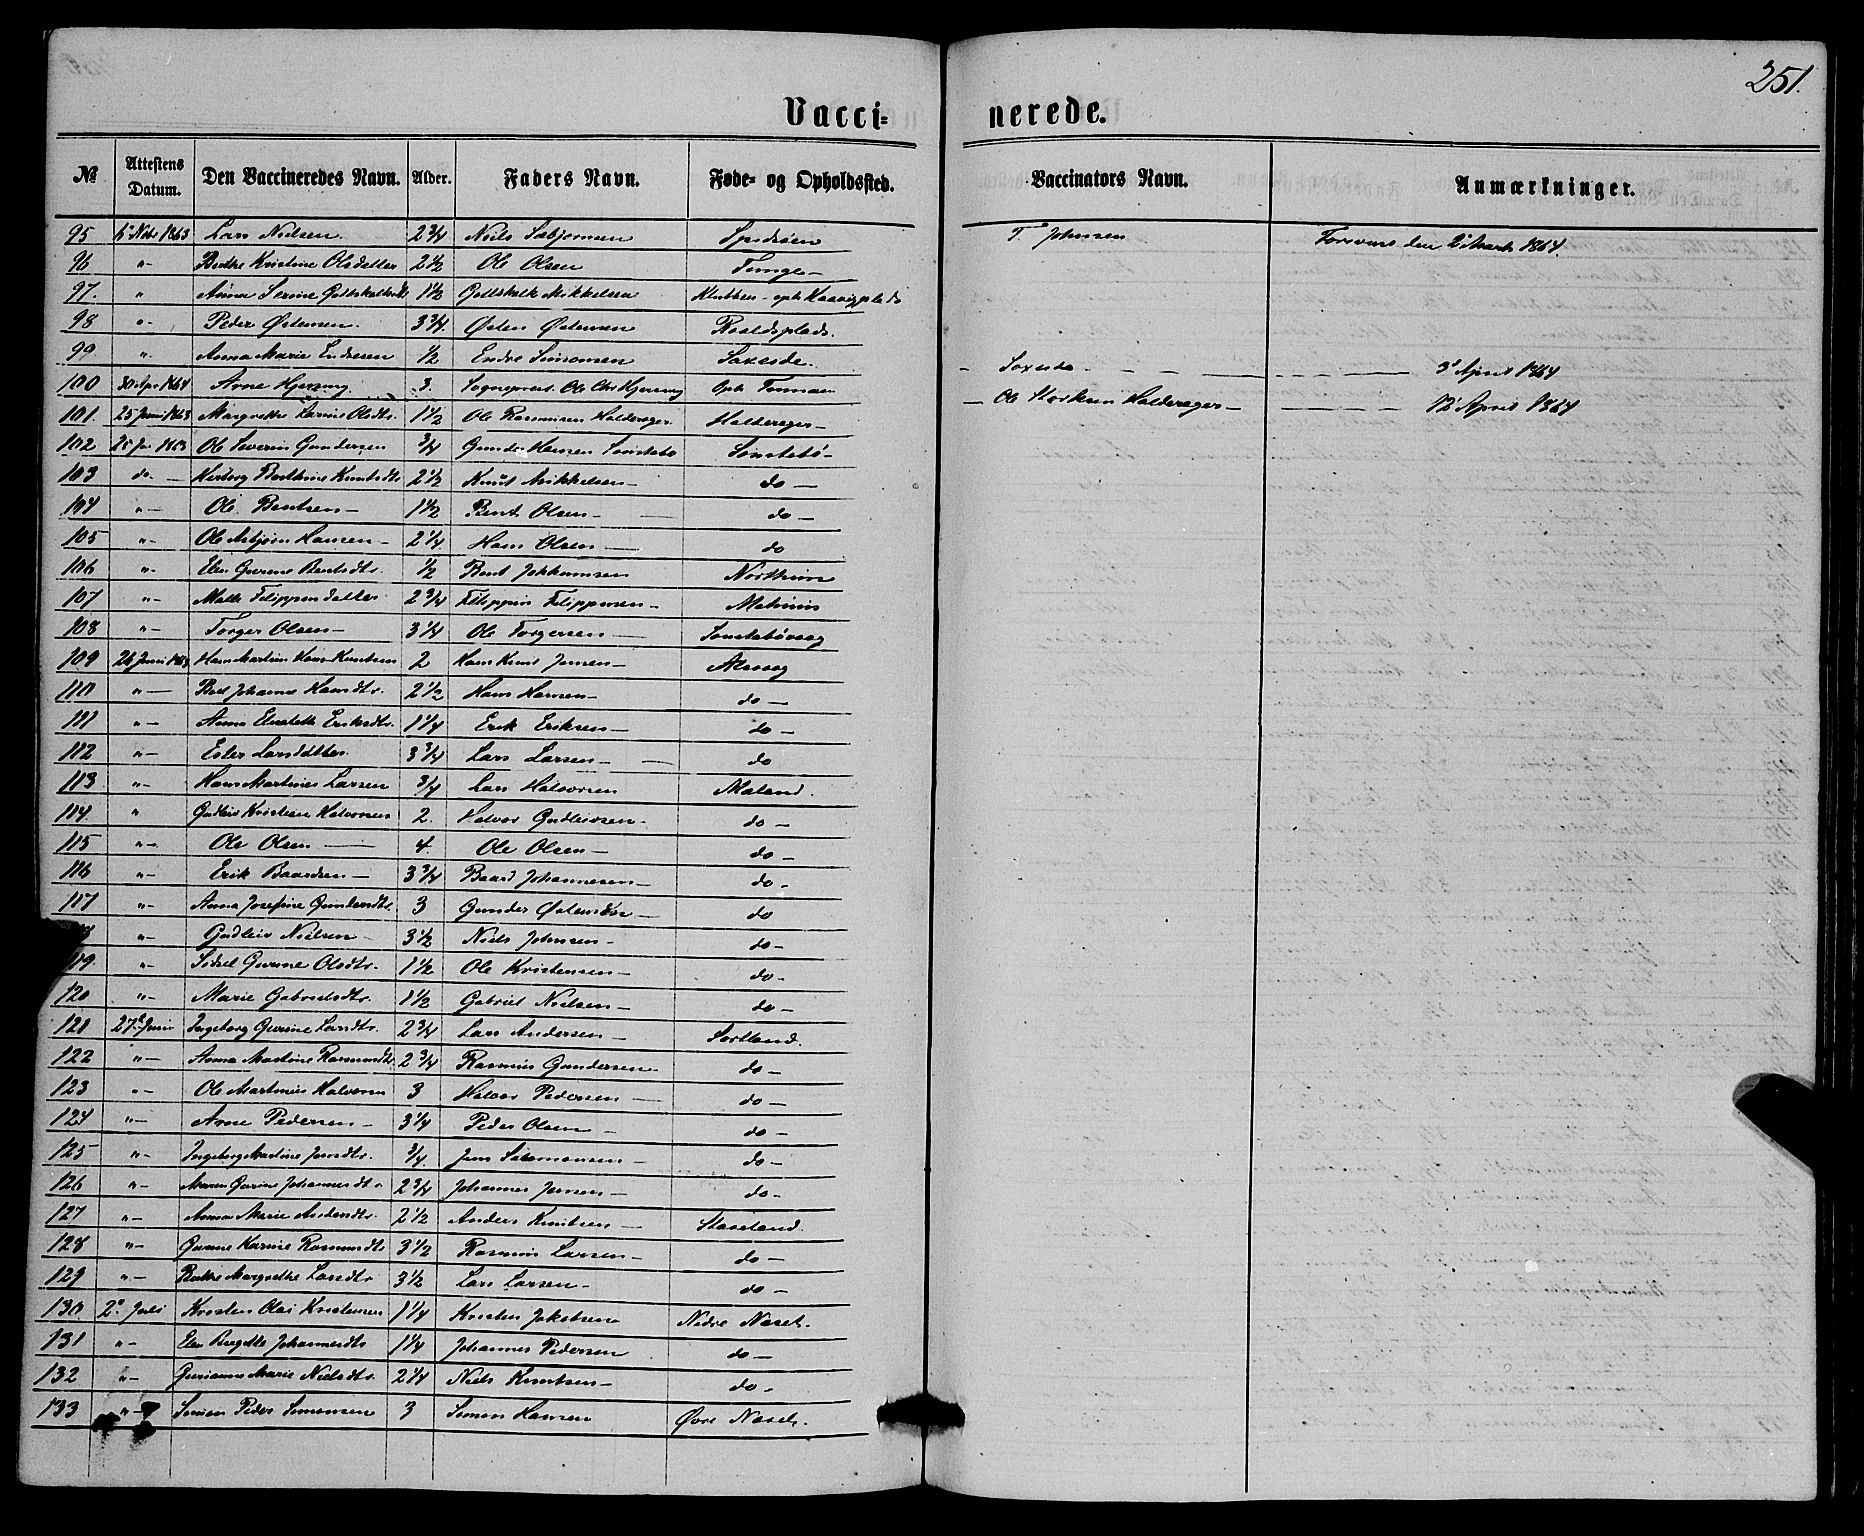 251.
Vacci= nerede.
№ Attestens Datum. Den Vaccineredes Navn. Alder. Faders Navn. Føde- og Opholdssted. Vaccinators Navn. Anmærkninger.
95 6 Nobr 1863 Lars Nielsen. 2 3/4 Niels Sæbjørnsen T. Johnsen den 2 Marts 1864.
96 " Berthe Kristine Olsdatter 2 1/2 Ole Olsen
97. " Anna Serine 1 1/2 Gottskalk Mikkelsen
98 " Peder Østensen 3 3/4 Østen Østensen
99 " Anna Marie Endresen 1/2 Endre Simonsen 3 April 1864
100 30 Apr 1864 Arne Hjerring 3. Sognepræst Ole Chr Hjerring Oph
101. 25 Juni 1863 Margrethe Larine Olsdtr. 1 1/2 Ole Rasmussen 12 April 1864
102 25 1863 Ole Severin Gundersen 3/4 Gunder Hansen Sønstabø Sønstabø
103 do. Berthine Knutsdtr 2 1/2 Knut Mikkelsen do
104 " Ole Bentsen 1 1/2 Bent Olsen do
105 " Ole Asbjørn Hansen 2 1/4. Hans Olsen do
106 " Elen Gurine Bentsdtr. 1/2 Bent Johannesen
107 " Malle Filippusdatter 2 3/4 Filippus Filippussen
108 " Torger Olsen 3 1/4 Ole Torgersen Sønstabøvaag
109 26 Juni 1863 Hans Martin Hans Knutsen 2 Hans Knut Jensen Alsvaag
110 " Johanne Hansdtr. 2 1/2 Hans Hansen do
111 " Anna Elisabeth Eriksdtr. 1 1/4 Erik Eriksen do
112 " Ester Larsdatter 3 3/4 Lars Larsen do
113 " Hans Martinus Larsen 3/4 Lars Halvorsen Maland.
114. " Gudleiv Kristian Halvorsen 2. Halvor Gudleivsen do
115 " Ole Olsen 4. Ole Olsen do
116 " Erik Baardsen 3 3/4 Baard Johannesen do
117 " Anna Josefine Gundersdtr. 3 Gunder Østensen do
" Gudleiv Nielsen 3 1/2 Niels Johnsen do
119. " Sidsel Gurine Olsdtr. 1 1/2 Ole Kristensen do
120 " Marie Gabrielsdtr. 1 1/2 Gabriel Nielsen do
121 27de Juni Ingeborg Gurine Larsdtr. 2 3/4 Lars Andersen Sortland.
122 " Anna Martine Rasmusdtr. 2 3/4 Rasmus Gundersen do
123 " Ole Martinius Halvorsen 3 Halvor Pedersen do
124 " Arne Pedersen 3 1/4 Peder Olsen do
125 " Ingeborg Martine Jensdtr. 3/4. Jens Salomonsen do
126 " Maren Gurine Johannesdtr. 2 3/4 Johannes Jensen do
127 " Anna Marie Andersdtr. 2 1/2 Anders Knutsen Staveland.
128 " Gurine Karine Rasmusdtr 3 1/2 Rasmus Larsen do
129 " Berthe Margrethe Larsdtr 3 1/2 Lars Larsen do
130. 2. Juli Kristen Olai Kristensen 1 1/4 Kristen Jakobsen Nedre Næset.
131 " Elen Birgitte Johannesdtr 1 1/4 Johannes Pedersen do
132 " Gurianna Marie Nielsdtr. 2 1/4 Niels Knutsen do
133 " Simon Peder Simonsen 3 Simon Hansen Øvre Næset.